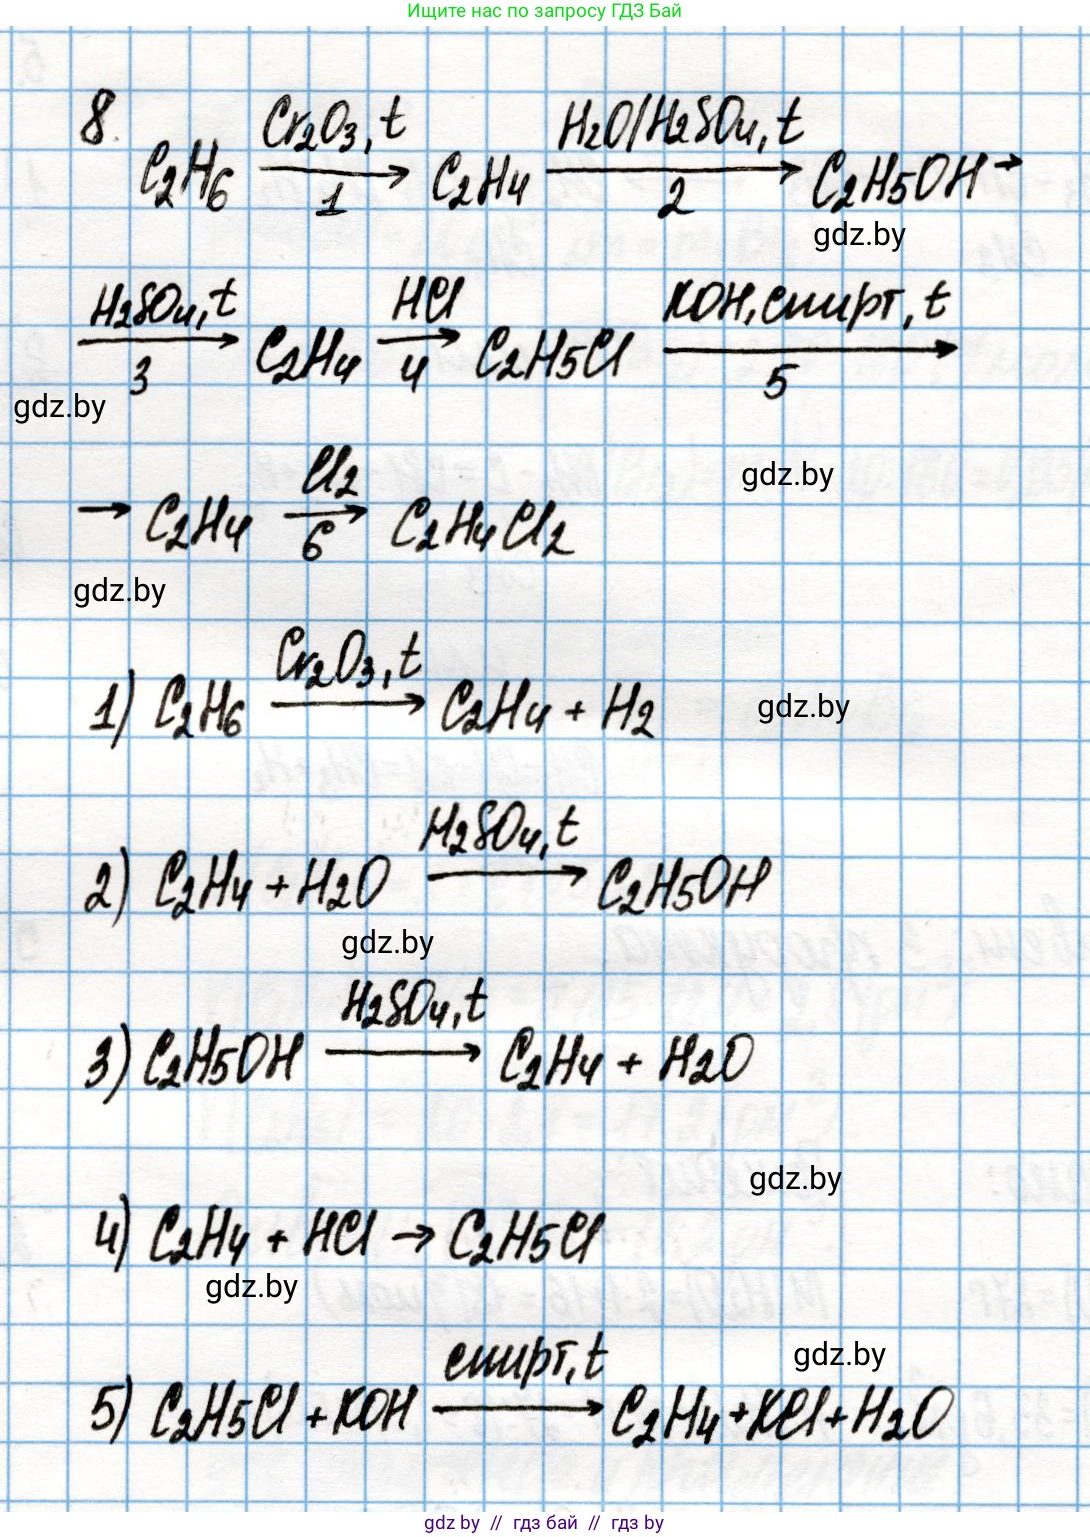 Ищите нас по запросу ГДЗ Бай
8. C2H6 —Cr2O3, t / 1→ C2H4 —H2O/H2SO4, t / 2→ C2H5OH →
gdz.by
—H2SO4, t / 3→ C2H4 —HCl / 4→ C2H5Cl —KOH, спирт, t / 5→
gdz.by
gdz.by
→ C2H4 —Cl2 / 6→ C2H4Cl2
gdz.by
1) C2H6 —Cr2O3, t→ C2H4 + H2
gdz.by
2) C2H4 + H2O —H2SO4, t→ C2H5OH
gdz.by
3) C2H5OH —H2SO4, t→ C2H4 + H2O
gdz.by
4) C2H4 + HCl → C2H5Cl
gdz.by
gdz.by
5) C2H5Cl + KOH —спирт, t→ C2H4 + KCl + H2O
gdz.by // гдз бай // гдз by